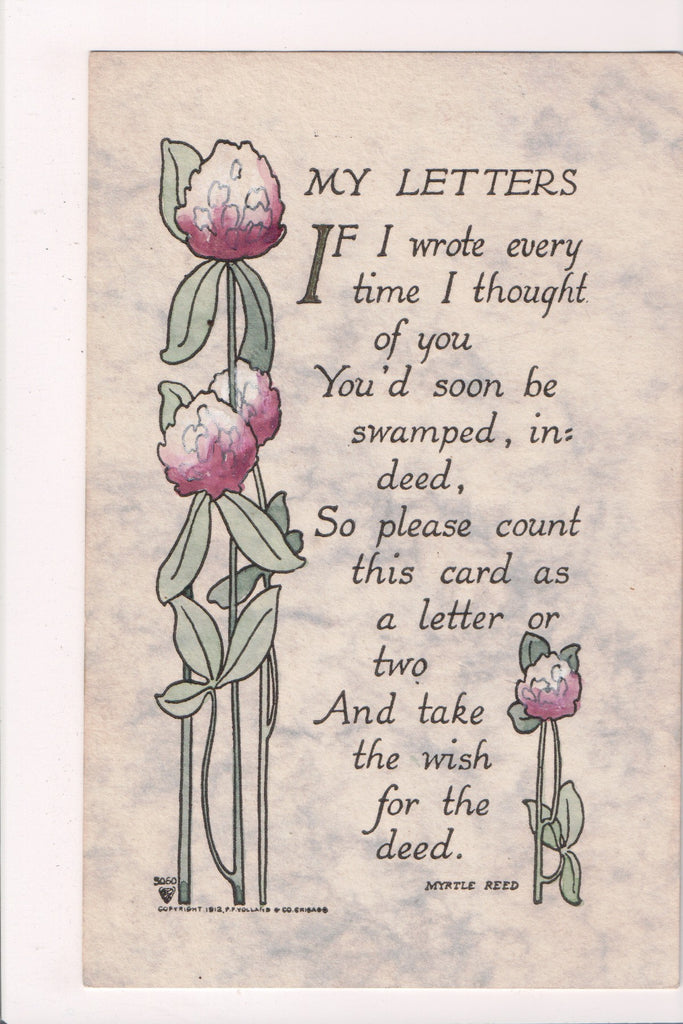 MY LETTERS
IF I wrote every
time I thought
of you
You'd soon be
swamped, in=
deed,
So please count
this card as
a letter or
two
And take
the wish
for the
deed.
MYRTLE REED
5060
COPYRIGHT 1912, P.F. VOLLAND & CO. CHICAGO